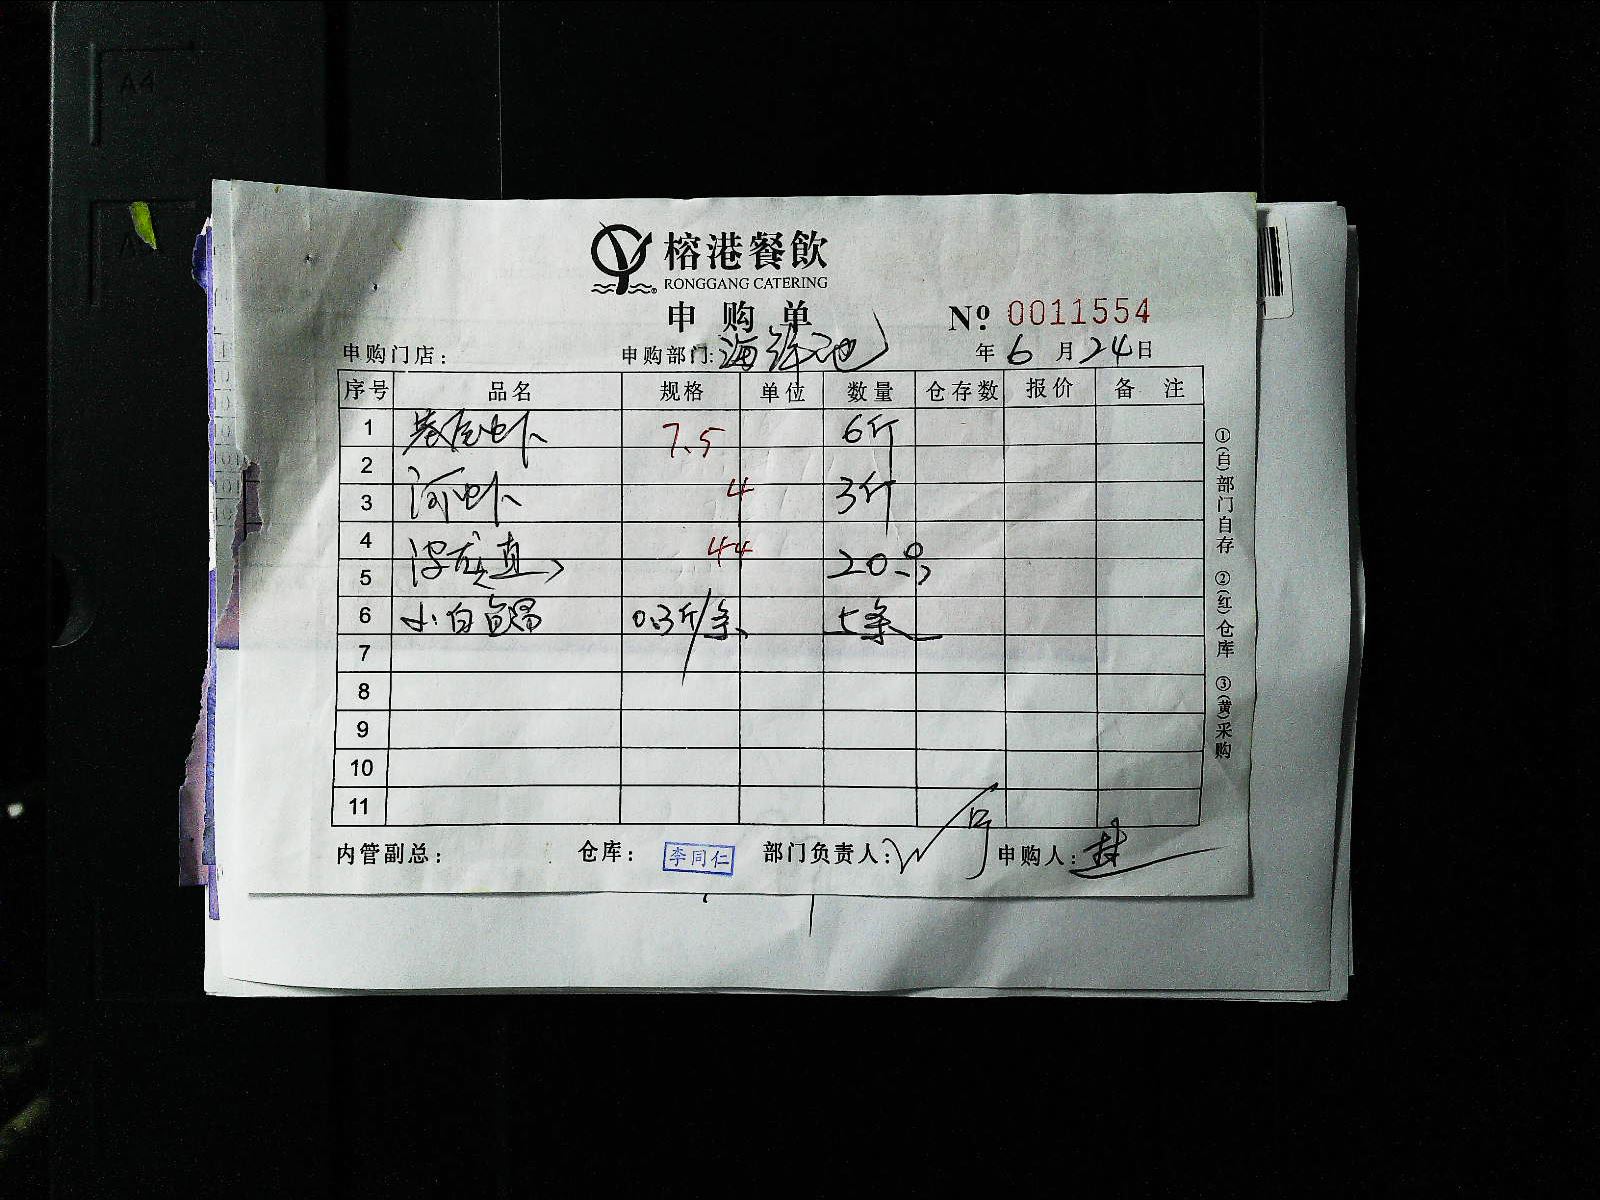 榕港餐飲
RONGGANG CATERING
申购单
Nº 0011554
申购门店： 申购部门：海鲜池 年 6 月 24 日
序号 品名 规格 单位 数量 仓存数 报价 备 注
1 基尾虾 7.5 6斤
2
3 河虾 4 3斤
4 44
5 20
6 小白 0.3斤/条 5条
7
8
9
10
11
内管副总： 仓库： 李同仁 部门负责人： 申购人：
①(白)部门自存 ②(红)仓库 ③(黄)采购
A4